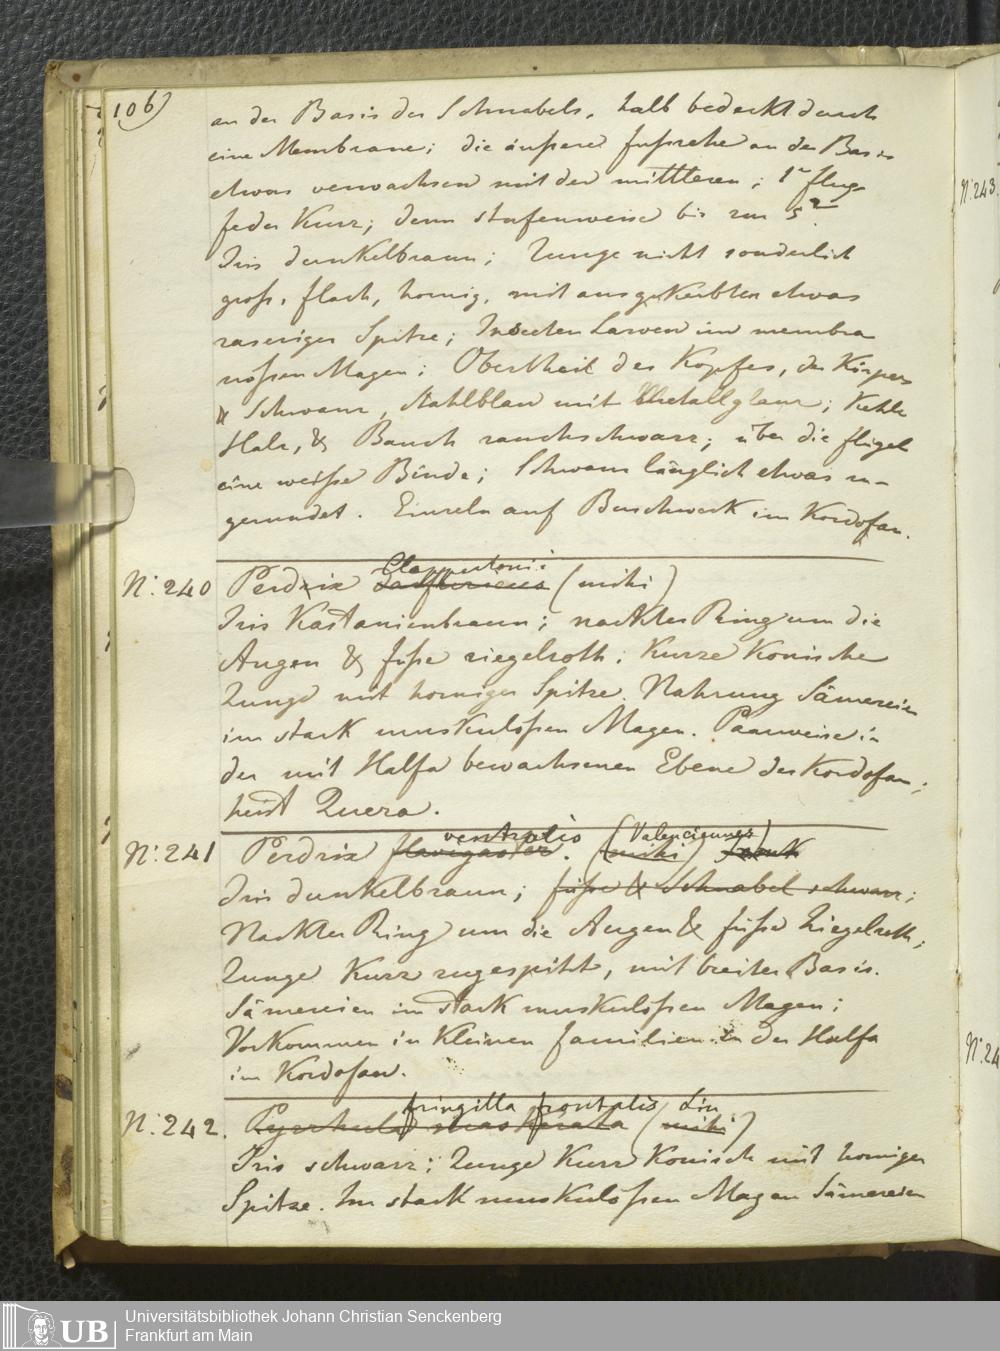 106)
an der Basis des Schnabels, halb bedeckt durch
eine Membrane; die äußere Fußzehe an der Basis
etwas verwachsen mit der mittleren; 1e Flug-
feder kurz; dann stufenweise bis zur 5e.
Iris dunkelbraun; Zunge nicht sonderlich
groß, flach, hornig, mit ausgekerbten etwas
faseriger Spitze; Insecten Larven im membra
nößen Magen; Obertheil des Kopfes, des Körpers
& Schwanz, Stahlblau mit Metallglanz; Kehle
Hals, & Bauch rauchschwarz; über die Flügel
eine weiße Binde; Schwanz länglich etwas zu-
gerundet. Einzeln auf Buschwerk im Kordofan.
N: 240 Perdrix Clappertonii (mihi)
Iris Kastanienbraun; nackter Ring um die
Augen & Füße ziegelroth; Kurze Konische
Zunge mit horniger Spitze. Nahrung Sämereien
im stark muskulößen Magen. Paarweise in
der mit Halfa bewachsenen Ebene des Kordofan;
heißt Quera.
N: 241 Perdrix flavigaster ventralis. (mihi) (Valenciennes)
Iris dunkelbraun; Füße & Schnabel schwarz;
Nackter Ring um die Augen & Füße Ziegelroth;
Zunge Kurz zugespitzt, mit breiter Basis.
Sämereien im stark muskulößen Magen;
Vorkommen in Kleinen Familien in der Halfa
im Kordofan.
N: 242. Pyrrhula fringilla frontalis Lin (mihi)
Iris schwarz; Zunge Kurz Konisch mit horniger
Spitze. Im stark muskulößen Magen Sämereien
N: 243.
N: 24
UB Universitätsbibliothek Johann Christian Senckenberg
Frankfurt am Main